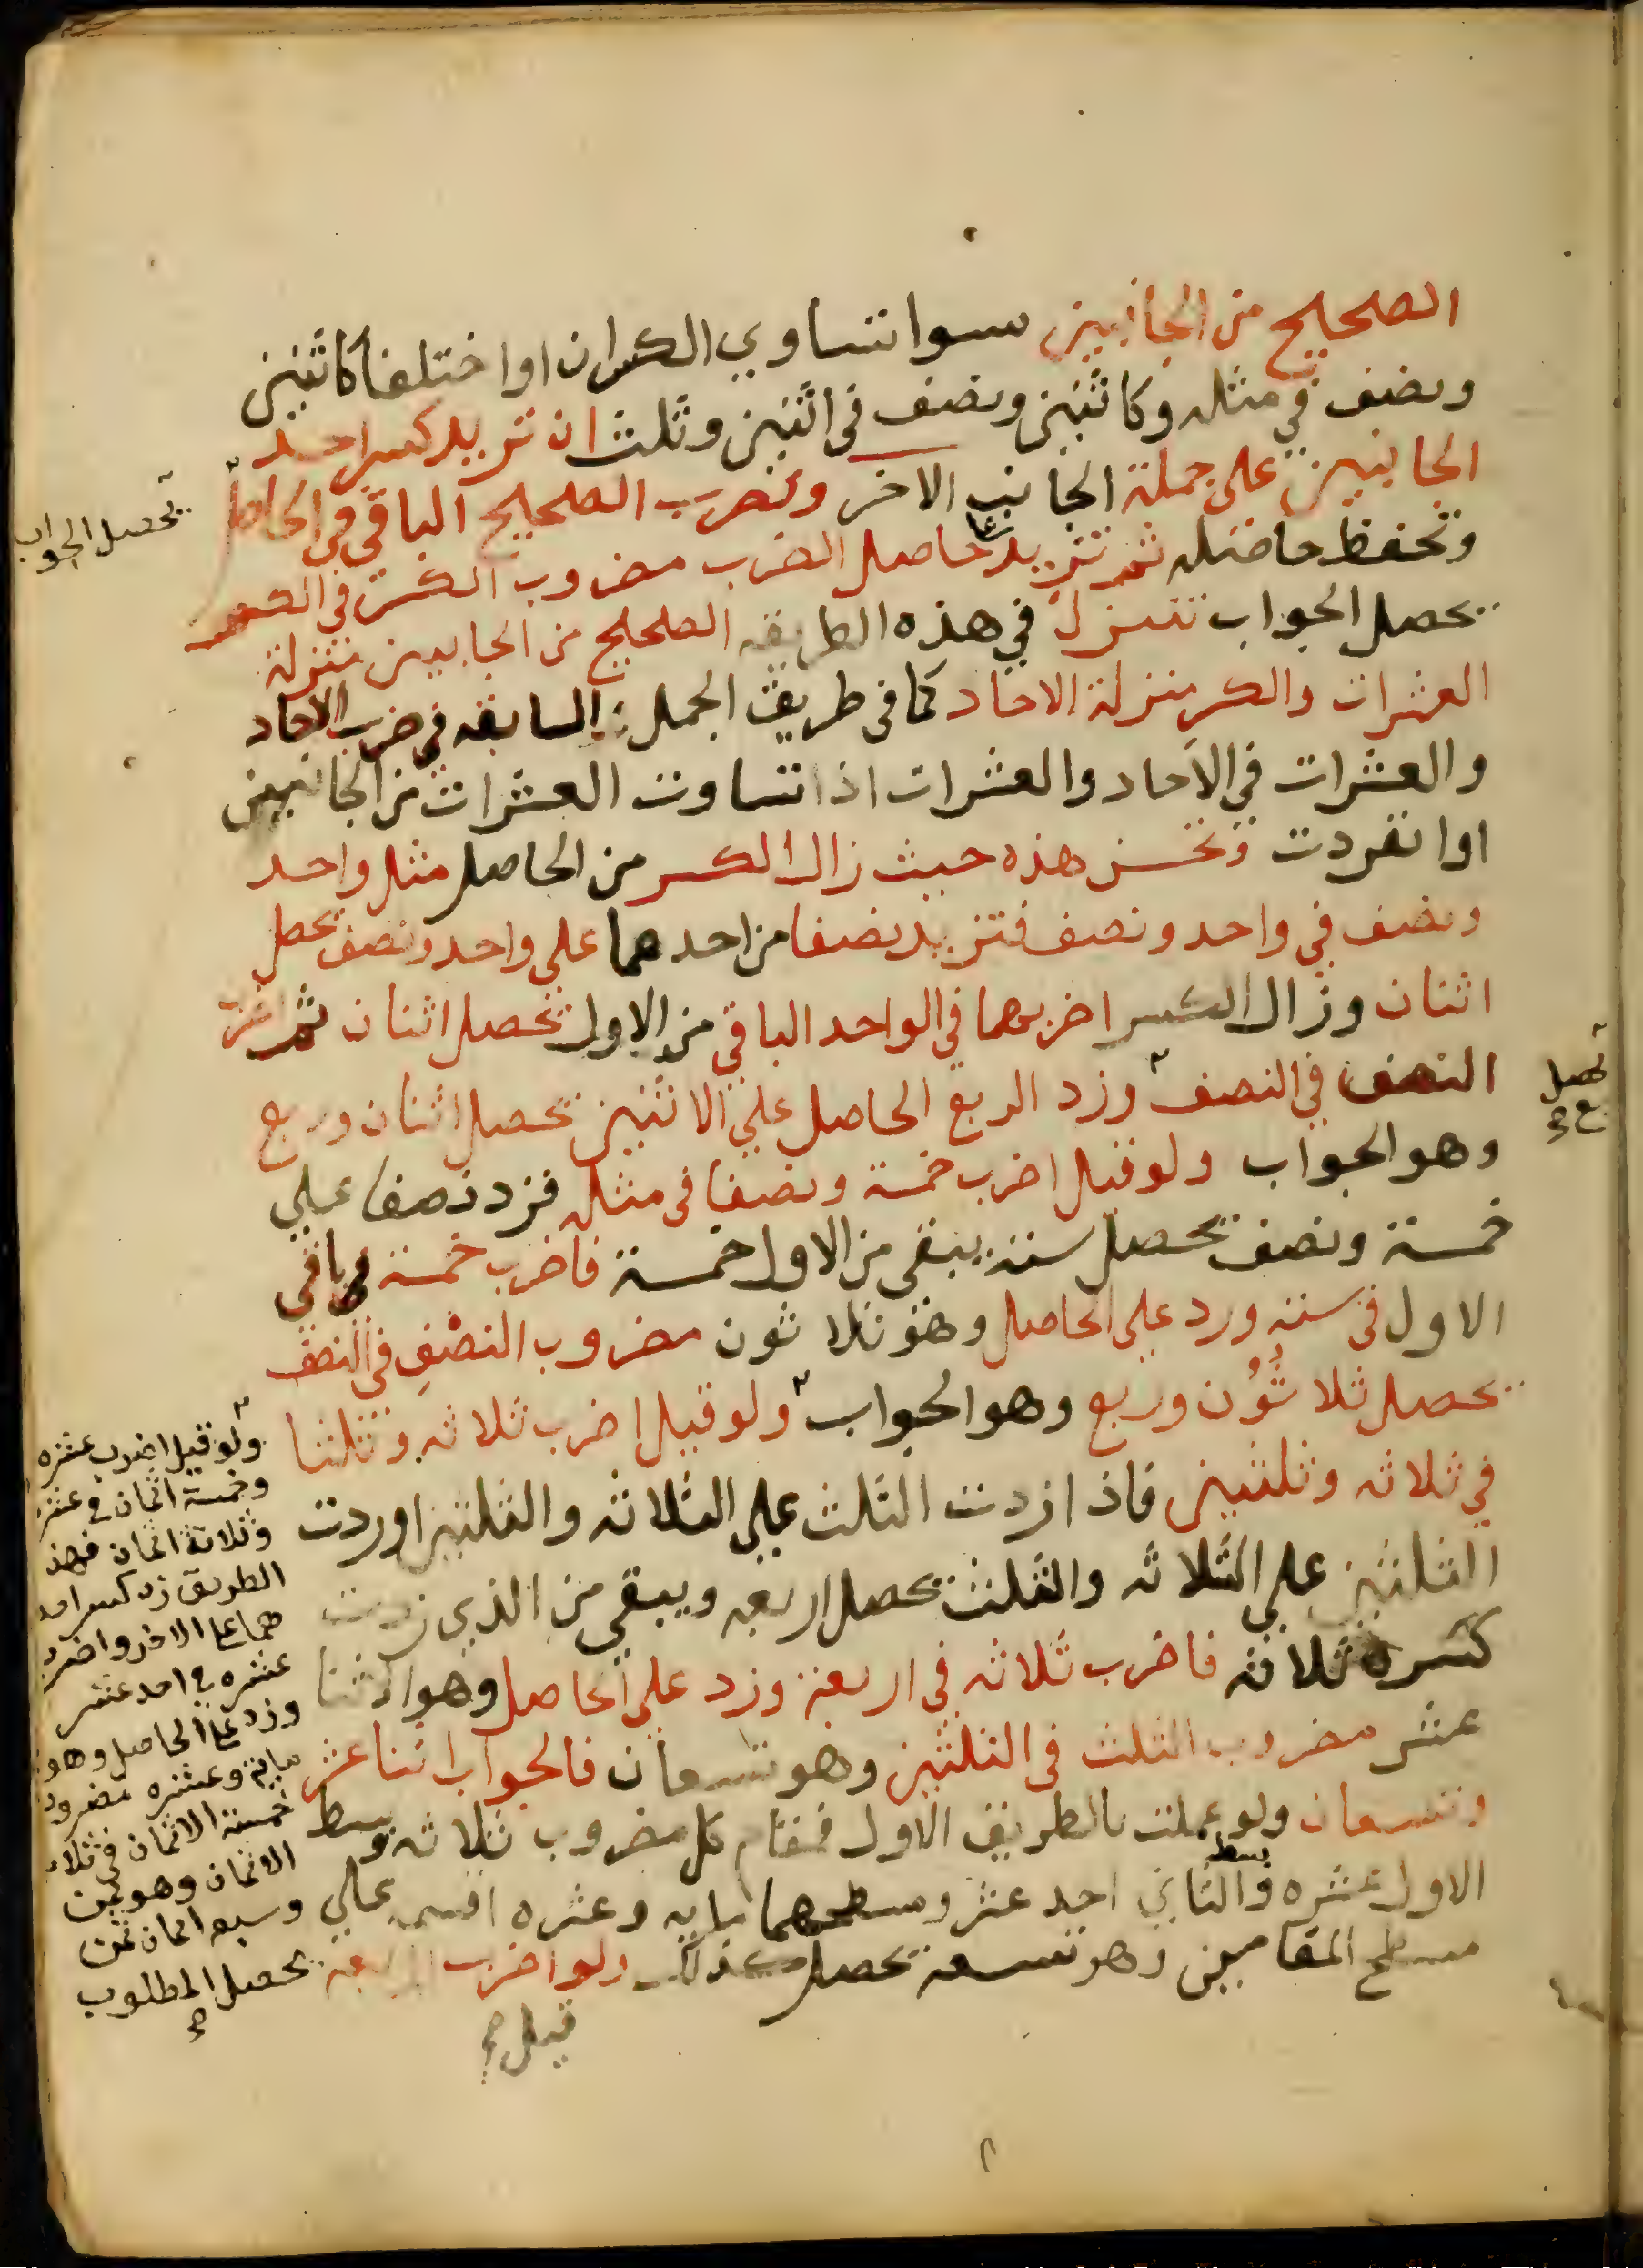 الصحيح من الجانبين سوا تساوي الكسران او اختلفا كاثنين
ونصف في مثله وكاثنين ونصف في اثنين وثلث ان تزيد كسر احد
الجانبين على جملة الجانب الاخر وتضرب الصحيح الباقي في الحاصل
وتحفظ حاصله ثم تزيد على حاصل الضرب مضروب الكسر في الكسر
يحصل الجواب تنزل في هذه الطريقه الصحيح من الجانبين منزلة
العشرات والكسر منزلة الاحاد كما في طريق الجمل السابقه في ضرب الاحاد
والعشرات في الاحاد والعشرات اذا تساوت العشرات من الجانبين
او انفردت وتحسن هذه حيث زال الكسر من الحاصل مثل واحد
ونصف في واحد ونصف فتزيد نصفا من احدهما على واحد ونصف يحصل
اثنان وزال الكسر اضربهما في الواحد الباقي من الاول يحصل اثنان ثم اضرب
النصف في النصف وزد الربع الحاصل علي الاثنين يحصل اثنان وربع
وهو الجواب ولو قيل اضرب خمسة ونصفا في مثله فزد نصفا علي
خمسة ونصف يحصل ستة يبقى من الاول خمسة فاضرب خمسة في باقي
الاول في ستة وزد على الحاصل وهو ثلاثون مضروب النصف في النصف
يحصل ثلاثون وربع وهو الجواب ولو قيل اضرب ثلاثه وثلثا
في ثلاثه وثلثين فاذا زدت الثلث علي الثلاثه والثلثين او زدت
الثلثين علي الثلاثه والثلث يحصل اربعه ويبقى من الذي زدت
كسره ثلاثه فاضرب ثلاثه في اربعة وزد علي الحاصل وهو اثنا
عشر مضروب الثلث في الثلثين وهو تسعان فالجواب اثنا عشر
وتسعان ولو عملت بالطريق الاول فمقام كل مضروب ثلاثه وبسط
الاول عشره وبسط الثاني احد عشر ومسطحهما مايه وعشره اقسمه علي
مسطح المقامين وهو تسعة يحصل كذلك ولو اضرب اربعه
قيل صح
يحصل الجواب
يحصل
ربع صح
ولو قيل اضرب عشره
وخمسة اثمان في عشره
وثلاثة اثمان فبهذ
الطريق زد كسر احد
هما على الاخر واضرب
عشره في احد عشر
وزد على الحاصل وهو
مايه وعشره مضروب
خمسة الاثمان في ثلاثة
الاثمان وهو ثمن
وسبعه اثمان ثمن
يحصل المطلوب
صح